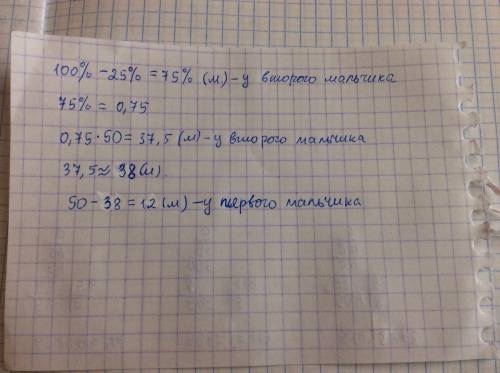 100% - 25% = 75% (м) - у второго мальчика
75% = 0,75
0,75 · 50 = 37,5 (м) - у второго мальчика
37,5 ≈ 38 (м).
50 - 38 = 12 (м) - у первого мальчика